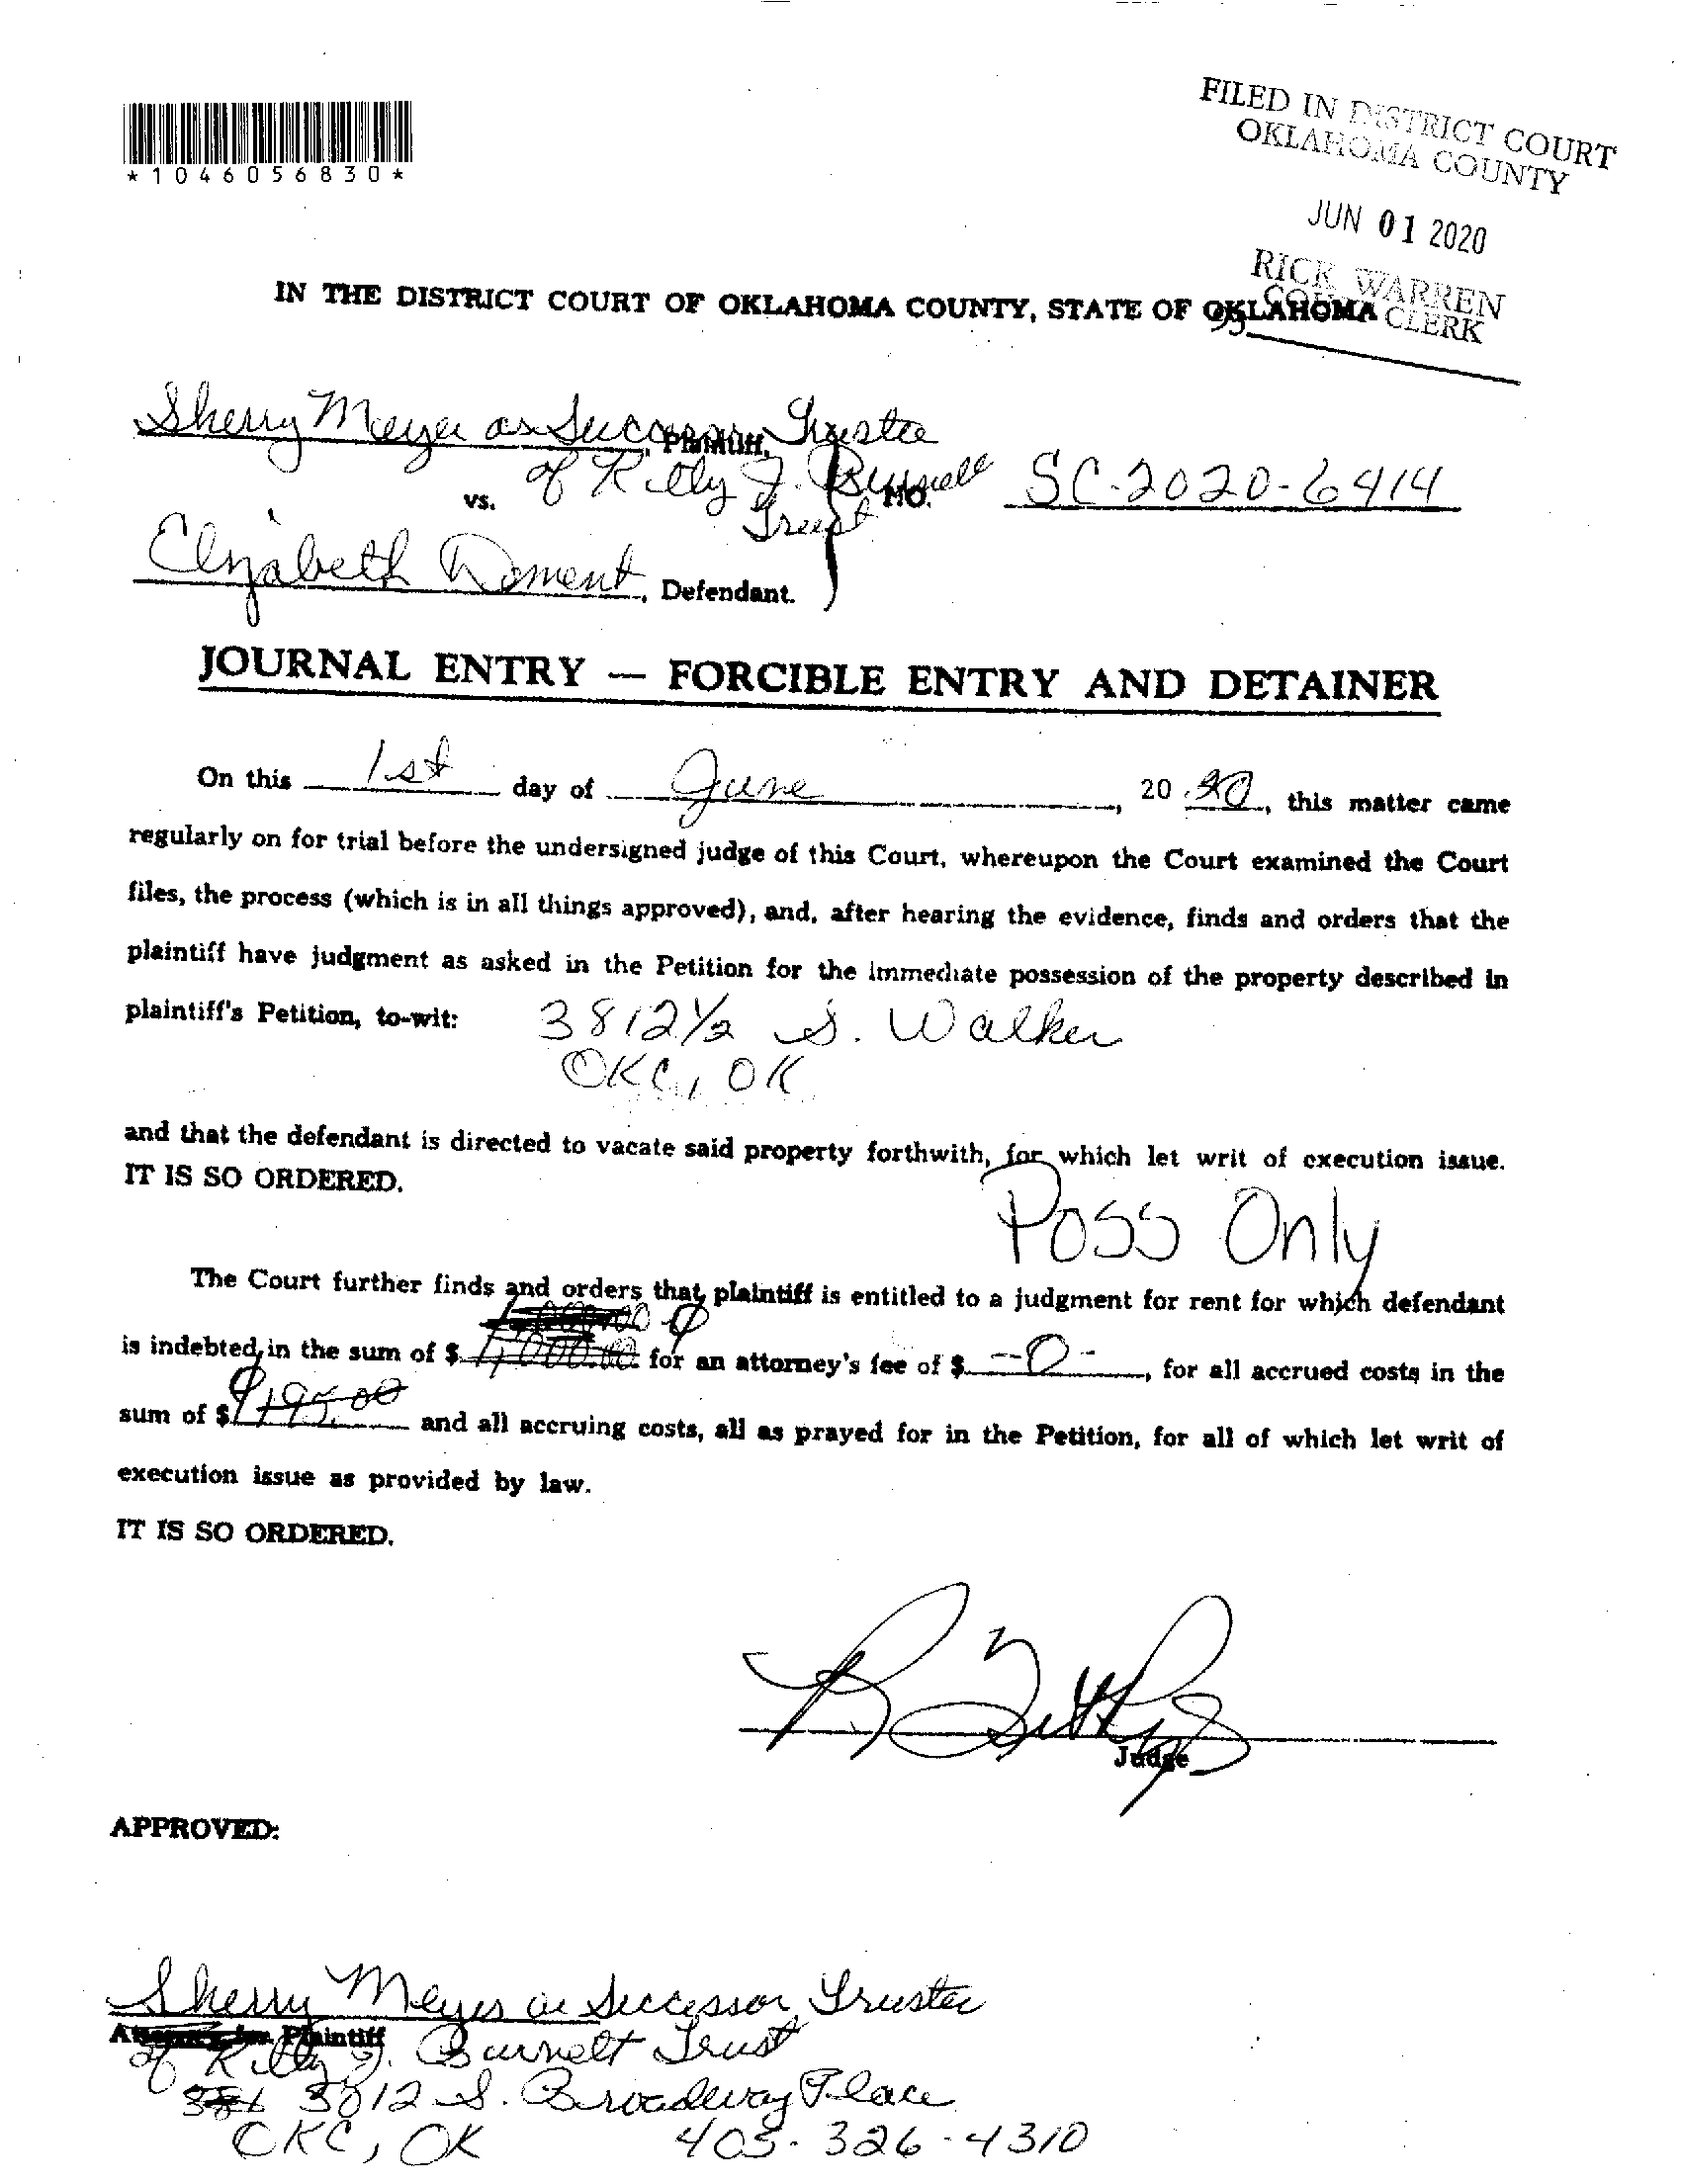 *1046056830*
FILED IN DISTRICT COURT
OKLAHOMA COUNTY
JUN 01 2020
RICK WARREN
COURT CLERK
95
IN THE DISTRICT COURT OF OKLAHOMA COUNTY, STATE OF OKLAHOMA
Sherry Meyer as Successor Trustee
, Plaintiff,
of J. Trust
vs.
NO. SC-2020-6414
Elizabeth Dement, Defendant.
JOURNAL ENTRY — FORCIBLE ENTRY AND DETAINER
On this 1st day of June, 2020, this matter came
regularly on for trial before the undersigned judge of this Court, whereupon the Court examined the Court
files, the process (which is in all things approved), and, after hearing the evidence, finds and orders that the
plaintiff have judgment as asked in the Petition for the immediate possession of the property described in
plaintiff's Petition, to-wit: 3812½ S. Walker
OKC, OK
and that the defendant is directed to vacate said property forthwith, for which let writ of execution issue.
IT IS SO ORDERED.
Poss Only
The Court further finds and orders that plaintiff is entitled to a judgment for rent for which defendant
is indebted in the sum of $ 1,000.00 for an attorney's fee of $ -0-, for all accrued costs in the
sum of $ 195.00 and all accruing costs, all as prayed for in the Petition, for all of which let writ of
execution issue as provided by law.
IT IS SO ORDERED.
Judge
APPROVED:
Sherry Meyer as Successor Trustee
Attorney for Plaintiff
of J. Burnett Trust
3812 S. Broadway Place
OKC, OK 405-326-4310